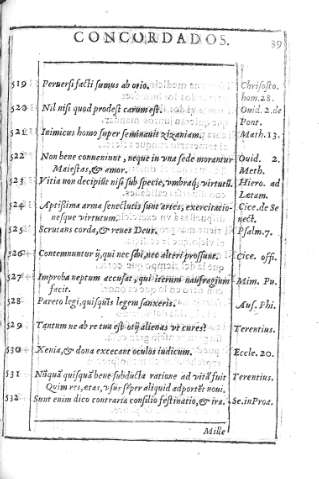 CONCORDADOS. 39
519 Peruersi facti sumus ab orio. Chrisosto.
hom. 28.
520 Nil nisi quod prodest carum est. Ouid. 2. de
Pont.
521 Inimicus homo super seminauit zizaniam. Math. 13.
522 Non bene conueniunt, neque in vna sede morantur Ouid. 2.
Maiestas, & amor. Meth.
523 Vitia non decipiũt nisi sub specie, vmbraq; virtutũ. Hiero. ad
Letam.
524 Aptissima arma senectutis sunt artes, exercitatio- Cice. de Se
nesque virtutum. nect.
525 Scrutans corda, & renes Deus. Psalm. 7.
526 Contemnuntur ij, qui nec sibi, nec alteri prossunt. Cice. offi.
527 Improba neptum accusat, qui iterum naufragium Mim. Pu.
facit.
528 Pareto legi, quisquis legem sanxeris. Aus. Phi.
529 Tantum ne ab re tua est otij alienas vt cures? Terentius.
530 Xenia, & dona excecant oculos iudicum. Eccle. 20.
531 Nũquã quisquã bene subducta ratione ad vitã fuit Terentius.
Quim res, etas, vsus sẽper aliquid adportet noui.
532 Sunt enim dico contraria consilio festinatio, & ira. Se. in Proa.
Mille